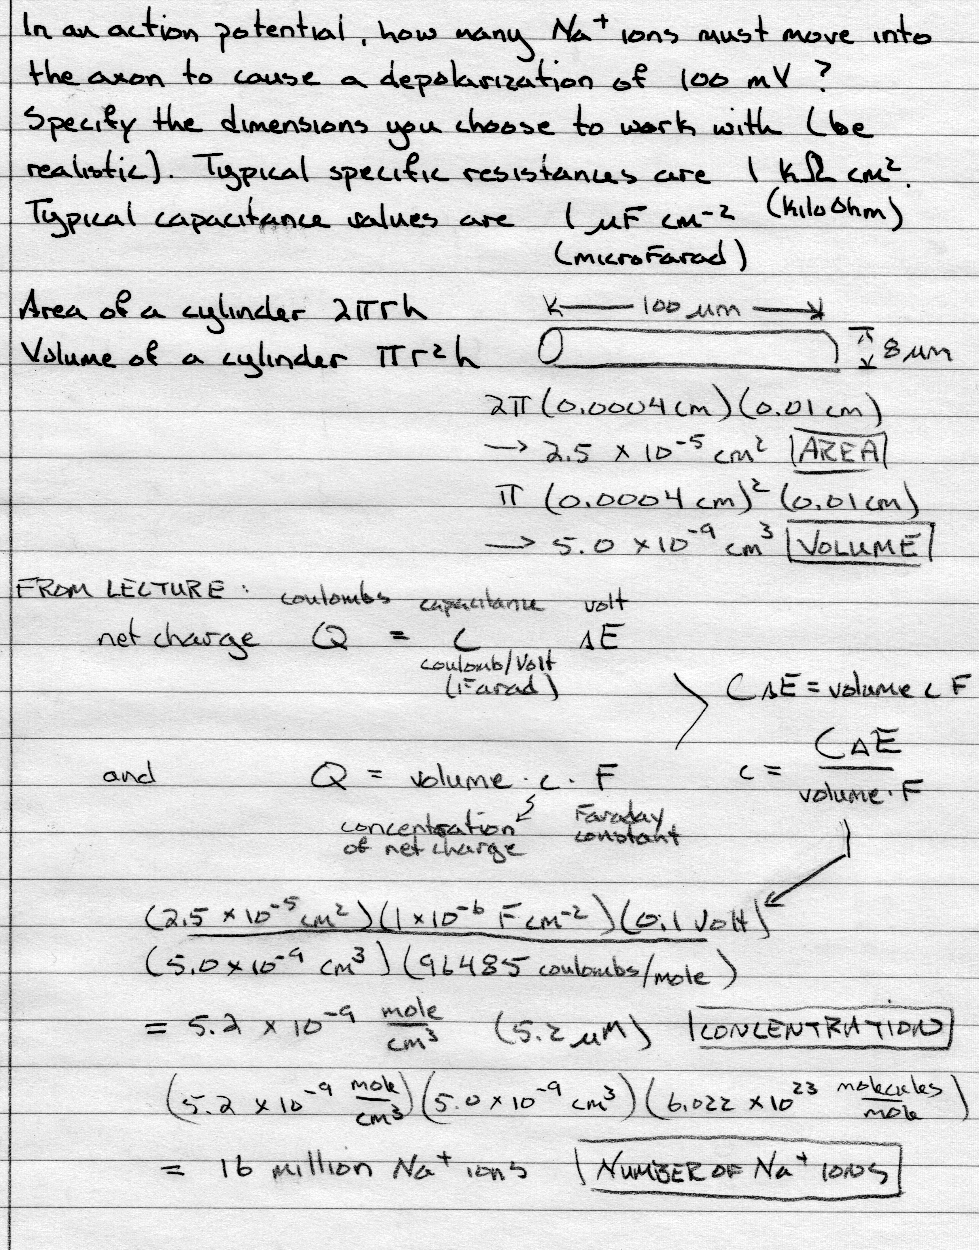 In an action potential, how many Na⁺ ions must move into
the axon to cause a depolarization of 100 mV?
Specify the dimensions you choose to work with (be
realistic). Typical specific resistances are 1 kΩ cm².
(kiloOhm)
Typical capacitance values are 1 μF cm⁻²
(microFarad)
Area of a cylinder 2πrh
100 μm
Volume of a cylinder πr²h
8 μm
2π (0.0004 cm)(0.01 cm)
→ 2.5 × 10⁻⁵ cm² AREA
π (0.0004 cm)² (0.01 cm)
→ 5.0 × 10⁻⁹ cm³ VOLUME
FROM LECTURE: coulombs capacitance volt
net charge Q = C ΔE
coulomb/Volt
(1 Farad)
CΔE = volume c F
c = CΔE / volume · F
and Q = volume · c · F
concentration of net charge
Faraday constant
(2.5 × 10⁻⁵ cm²)(1 × 10⁻⁶ F cm⁻²)(0.1 Volt)
(5.0 × 10⁻⁹ cm³)(96485 coulombs/mole)
= 5.2 × 10⁻⁹ mole/cm³ (5.2 μM) CONCENTRATION
(5.2 × 10⁻⁹ mole/cm³)(5.0 × 10⁻⁹ cm³)(6.022 × 10²³ molecules/mole)
= 16 million Na⁺ ions NUMBER OF Na⁺ IONS